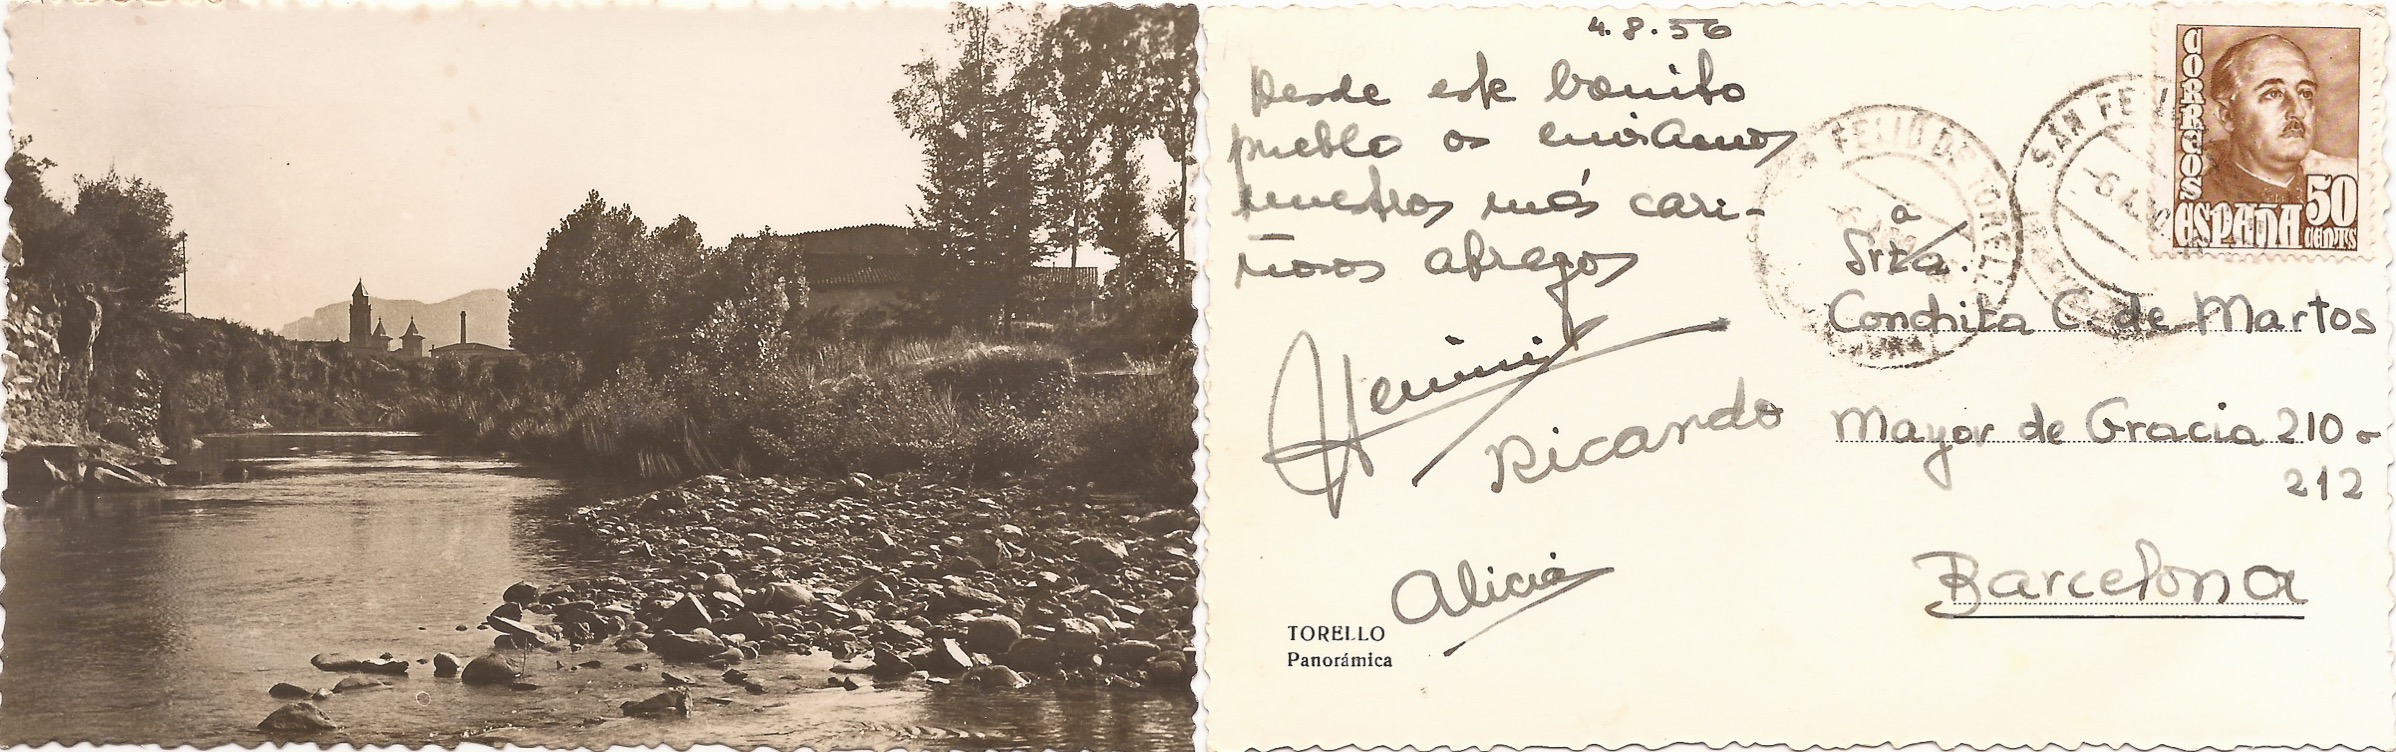 4.8.56
Desde este bonito
pueblo os enviamos
nuestros más cari-
ñosos abrazos
Ricardo
Alicia
TORELLO
Panorámica
CORREOS
ESPAÑA
50
CENTS
SAN FELIU DE TORELLO
SAN FELIU
a
Srta.
Conchita C. de Martos
Mayor de Gracia 210 o
212
Barcelona